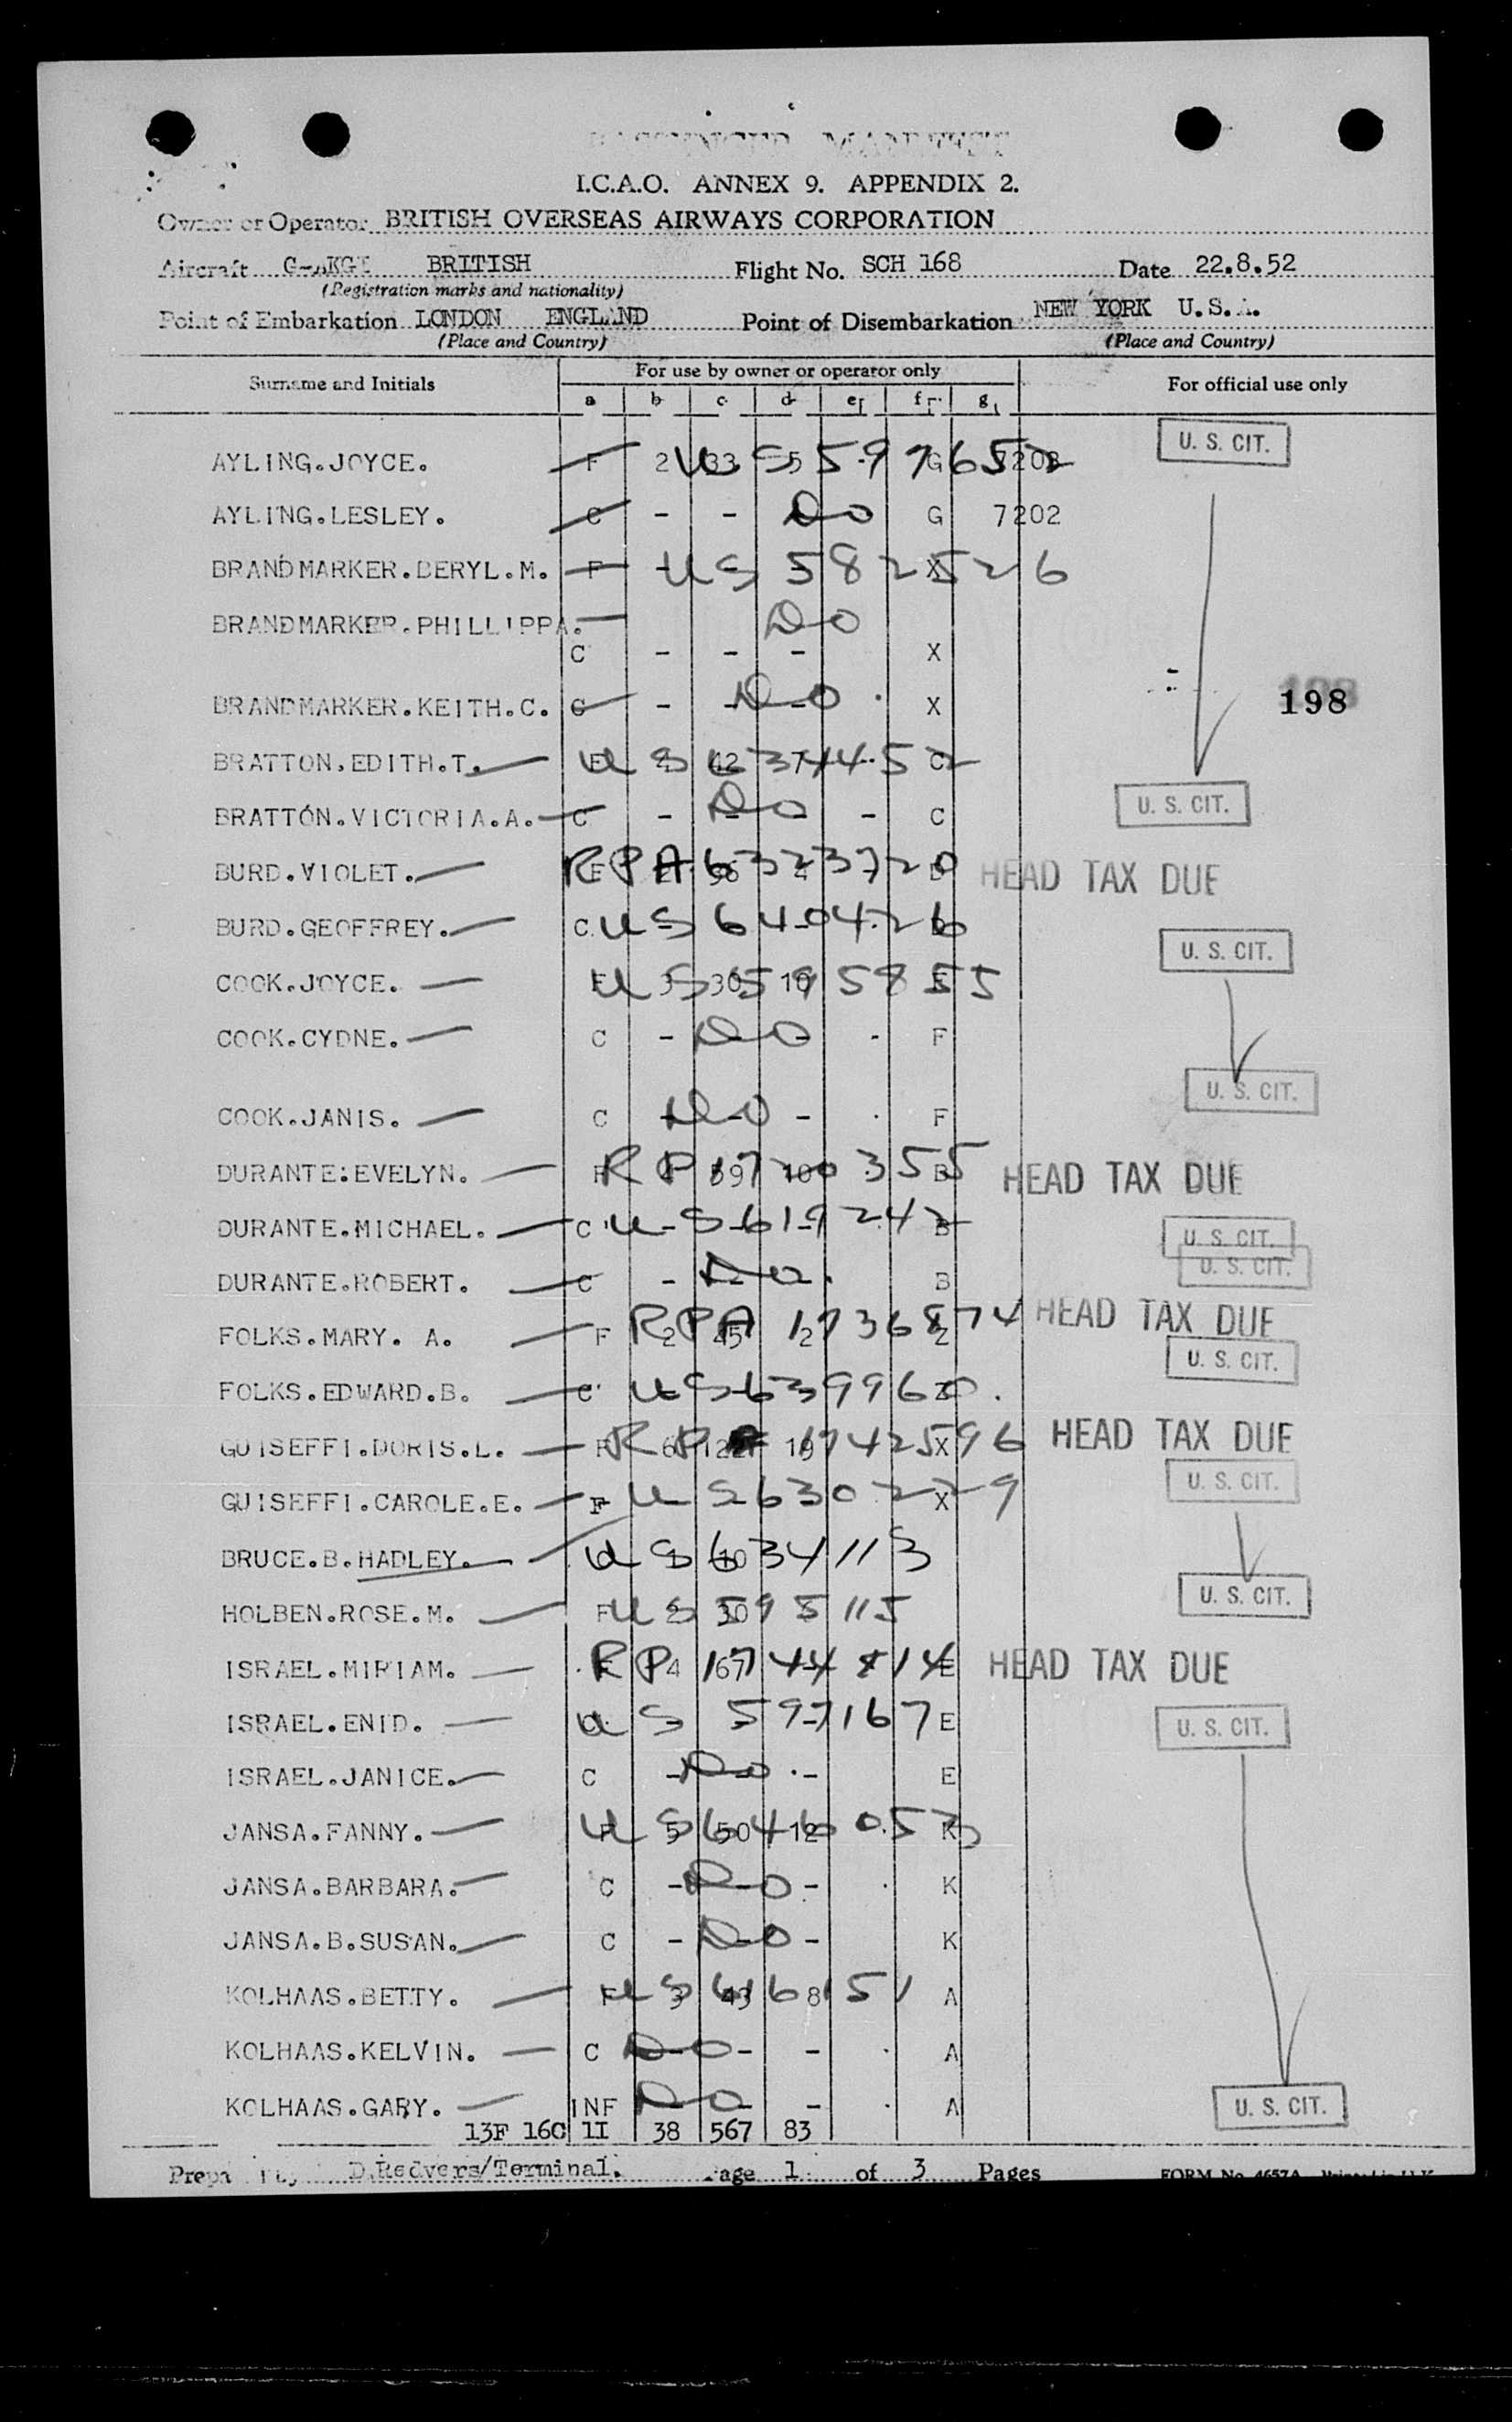 PASSENGER MANIFEST
I.C.A.O. ANNEX 9. APPENDIX 2.
Owner or Operator BRITISH OVERSEAS AIRWAYS CORPORATION
Aircraft G-AKGI BRITISH Flight No. SCH 168 Date 22.8.52
(Registration marks and nationality)
Point of Embarkation LONDON ENGLAND Point of Disembarkation NEW YORK U.S.A.
(Place and Country) (Place and Country)
Surname and Initials For use by owner or operator only For official use only
a b c d e f g
AYLING.JOYCE. F 2 33 5 G 7202 US 5977652 U. S. CIT.
AYLING.LESLEY. C - - Do G 7202
BRANDMARKER.BERYL.M. F - US 582526 X
BRANDMARKER.PHILLIPPA. Do
C - - - X
198
BRANDMARKER.KEITH.C. C - - Do X
BRATTON.EDITH.T. US 6374452 C
U. S. CIT.
BRATTON.VICTORIA.A. C - Do - C
BURD.VIOLET. RPA 6323720 HEAD TAX DUE
BURD.GEOFFREY. C. US 640426
U. S. CIT.
COOK.JOYCE. F 3 30 10 US 595855
COOK.CYDNE. C - Do F
U. S. CIT.
COOK.JANIS. C Do - F
DURANTE:EVELYN. F RP 17200355 B HEAD TAX DUE
DURANTE.MICHAEL. C US 619242 B
U. S. CIT.
DURANTE.ROBERT. C - Do B
U. S. CIT.
FOLKS.MARY. A. F 2 45 2 Z RPA 1736874 HEAD TAX DUE
U. S. CIT.
FOLKS.EDWARD.B. C US 639960 Z
GUISEFFI.DORIS.L. F 6 122 19 X RP 1742596 HEAD TAX DUE
U. S. CIT.
GUISEFFI.CAROLE.E. F US 630229 X
BRUCE.B.HADLEY. US 634113
U. S. CIT.
HOLBEN.ROSE.M. F US 595115
ISRAEL.MIRIAM. F 4 67 RP 1744814 E HEAD TAX DUE
ISRAEL.ENID. US 597167 E
U. S. CIT.
ISRAEL.JANICE. C - Do - E
JANSA.FANNY. F 5 50 12 US 646053 K
JANSA.BARBARA. C - Do - K
JANSA.B.SUSAN. C - Do - K
KOLHAAS.BETTY. F 3 43 8 US 616151 A
KOLHAAS.KELVIN. C Do - - A
KOLHAAS.GARY. INF Do - - A
U. S. CIT.
13F 16C 1I 38 567 83
D.Redvers/Terminal. Page 1 of 3 Pages FORM No. 4657A